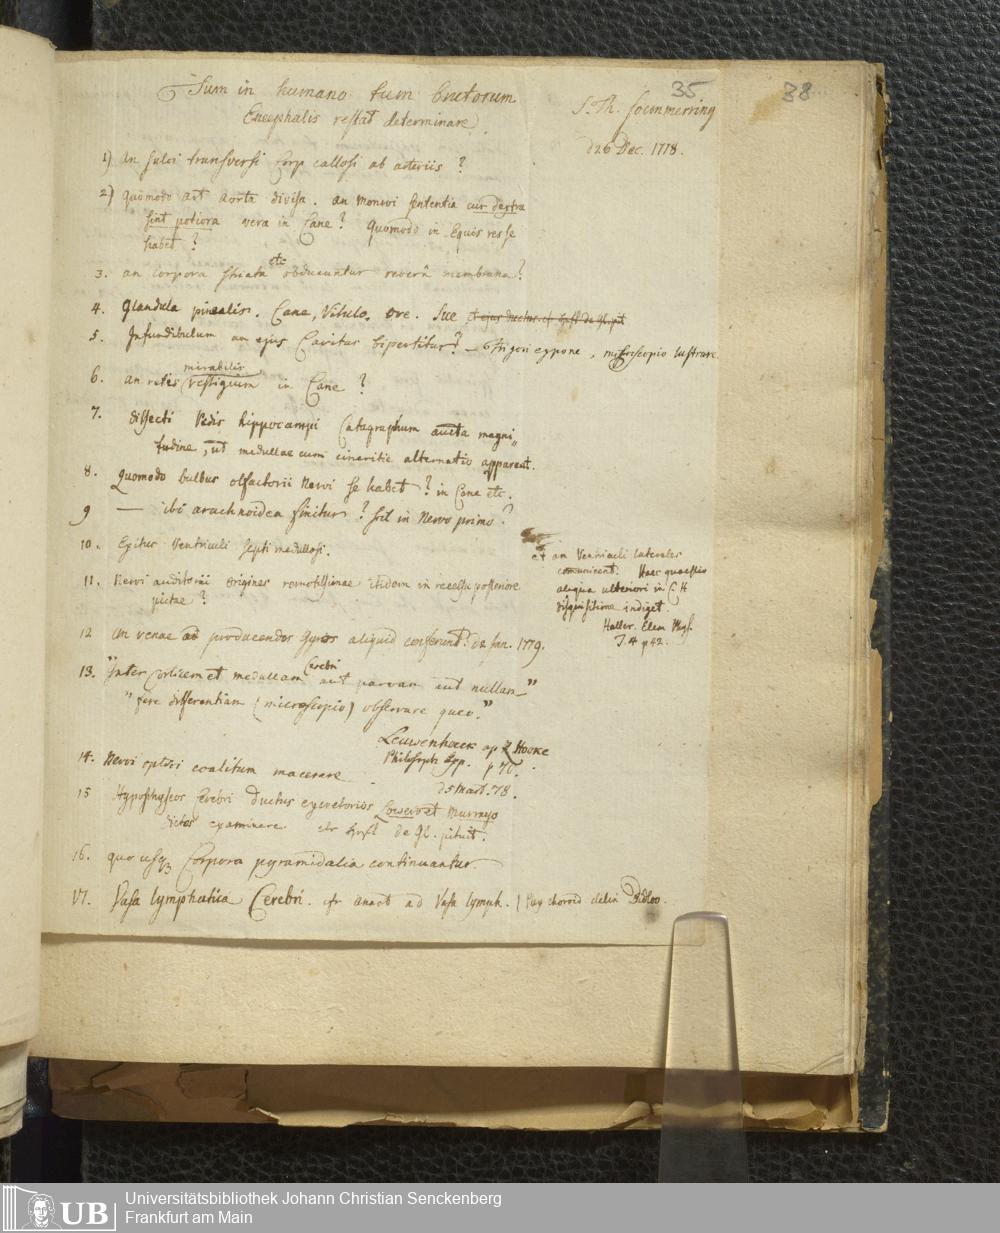 35
38
Tum in humano tum brutorum
Encephalis restat determinare
S. Th. Soemmerring
d 26 Dec. 1778.
1) an sulci transversi Corp callosi ab arteriis ?
2) Quomodo art aorta divisa. an Monroi sententia cur dextra
sint potiora vera in Cane ? Quomodo in Equis res se
habet ?
3. an corpora striata etc obducuntur membrana ?
4. Glandula pinealis. Cane, Vitulo, ove. Sue
5. Infundibulum an ejus Cavitas bipertitur? — frigori expone, microscopio lustrare
6. an retis mirabilis vestigium in Cane ?
7. dissecti Pedis hippocampi Catagraphum aucta magni„
tudine, ut medullae cum cineritie alternatio appareat.
8. Quomodo bulbus olfactorii Nervi se habet ? in Cane etc.
9 — ibi arachnoidea finitur ? scil in Nervo primo ?
10. Exitus Ventriculi septi medullosi.
et an Ventriculi laterales
comunicent. Haec quaestio
aliqua ulteriori in C H
disquisitione indiget.
Haller. Elem Phys.
T. 4 p 42.
11. Nervi auditorii origines remotissimae itidem in recessu posteriore
pictae ?
12 an venae ad producendos gyros aliquid conferunt? d 2 Jan. 1779.
13. "Inter Corticem et medullam Cerebri aut parvam aut nullam"
"fere differentiam (microscopio) observare queo."
Leuwenhoeck ap R Hooke
Philosoph Exp. p 70.
d 5 Mart. 78.
14. Nervi optici coalitum macerare
15 Hypophyseos Cerebri Ductus excretorios Lowero et Murrayo
dictos examinare. de Gl. pituit.
16. quo usq3 Corpora pyramidalia continuantur
17. Vasa lymphatica Cerebri. cfr ad Vasa lymph. choroid delin Bidloo.
UB
Universitätsbibliothek Johann Christian Senckenberg
Frankfurt am Main